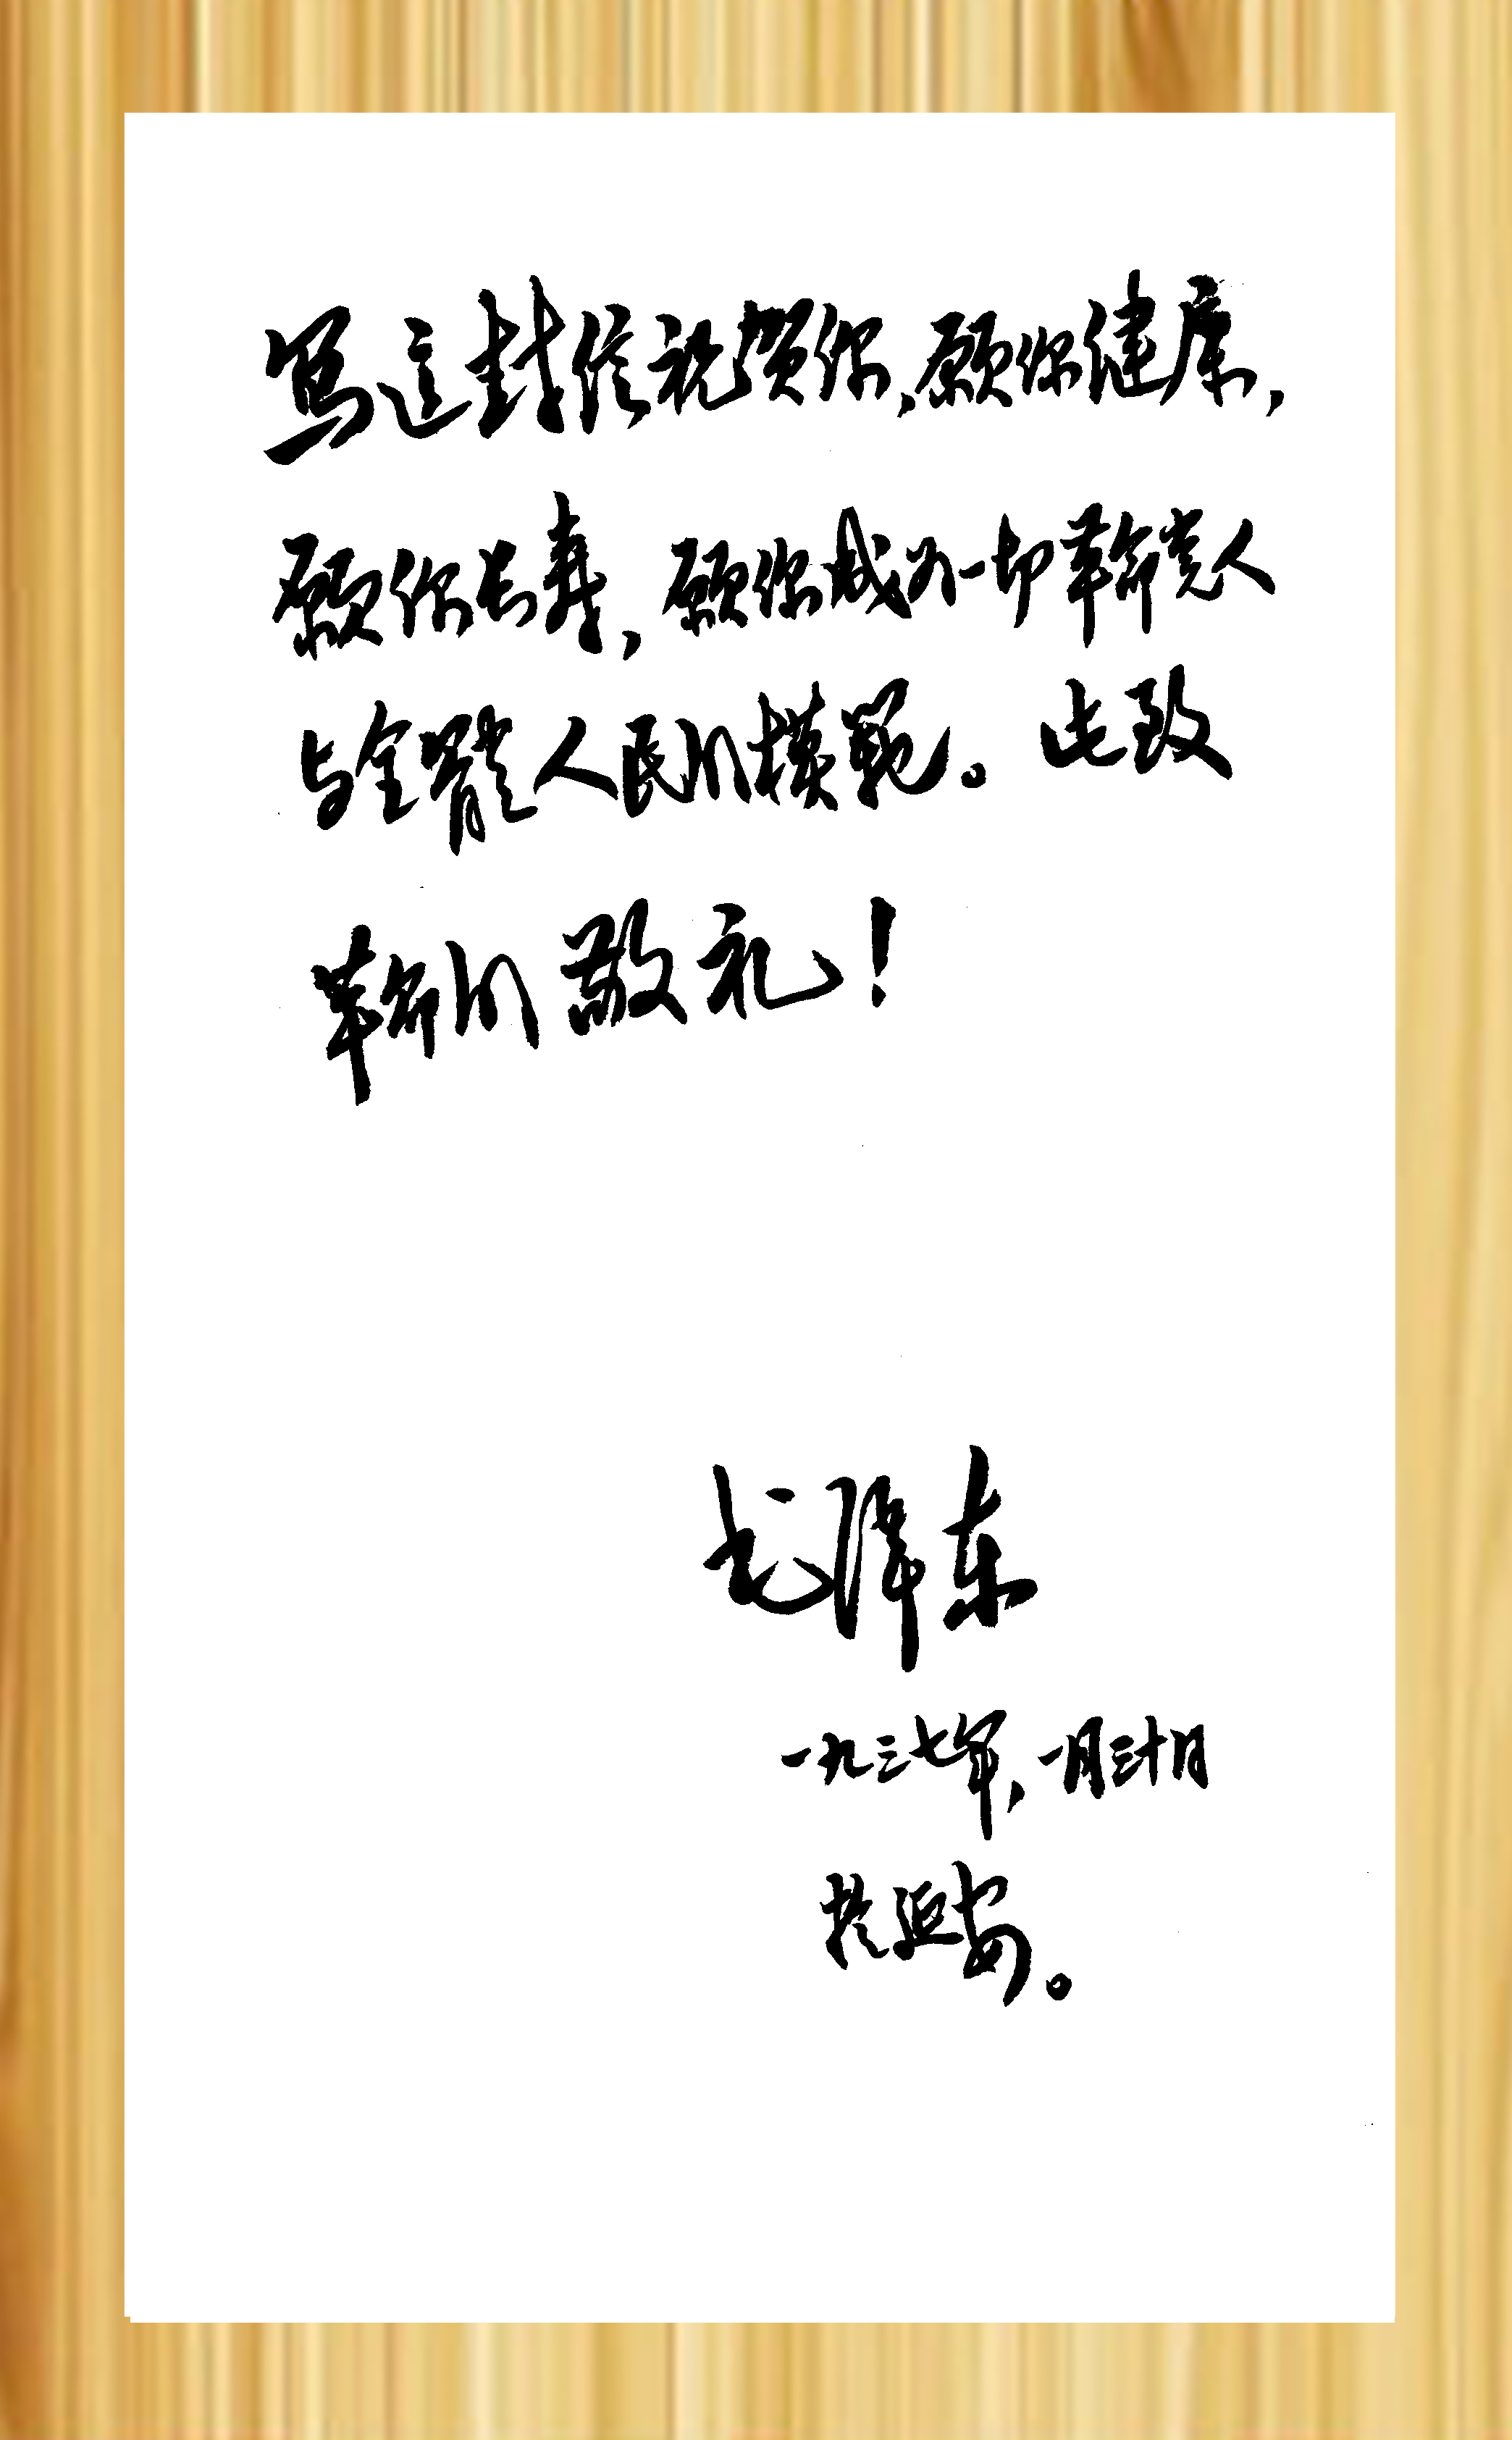 写這封信祝贺你,愿你健康,
愿你长寿,愿你成为一切革命党人
与全體人民的模範。此致
革命的敬礼!
毛泽东
一九三七年,一月三十日
於延安。